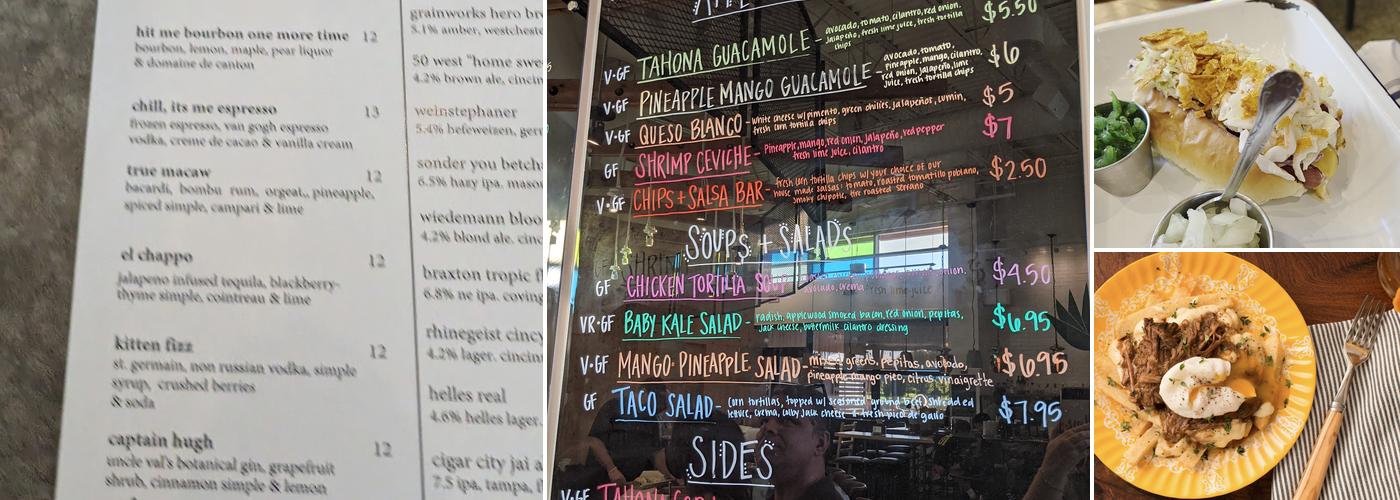 hit me bourbon one more time 12
bourbon, lemon, maple, pear liquor
& domaine de canton
chill, its me espresso 13
frozen espresso, van gogh espresso
vodka, creme de cacao & vanilla cream
true macaw 12
bacardi, bombu rum, orgeat, pineapple,
spiced simple, campari & lime
el chappo 12
jalapeno infused tequila, blackberry-
thyme simple, cointreau & lime
kitten fizz 12
st. germain, non russian vodka, simple
syrup, crushed berries
& soda
captain hugh 12
uncle val's botanical gin, grapefruit
shrub, cinnamon simple & lemon
grainworks hero
5.1% amber, westcheste
50 west "home swe
4.2% brown ale, cincin
weinstephaner
5.4% hefeweizen, ger
sonder you betch
6.5% hazy ipa. maso
wiedemann bloo
4.2% blond ale. cinc
braxton tropic
6.8% ne ipa. coving
rhinegeist cincy
4.2% lager. cincin
helles real
4.6% helles lager.
cigar city jai a
7.5 ipa, tampa, f
avocado, tomato, cilantro, red onion. $5.50
V·GF TAHONA GUACAMOLE - jalapeño, fresh lime juice, fresh tortilla
chips
avocado, tomato,
V·GF PINEAPPLE MANGO GUACAMOLE - pineapple, mango, cilantro, $6
red onion, jalapeño, lime
juice, fresh tortilla chips
V·GF QUESO BLANCO - white cheese w/ pimento, green chilies, jalapeños, cumin, $5
fresh corn tortilla chips
GF SHRIMP CEVICHE - Pineapple, mango, red onion, jalapeño, red pepper $7
fresh lime juice, cilantro
V·GF CHIPS + SALSA BAR - fresh corn tortilla chips w/ your choice of our $2.50
house made salsas: tomato, roasted tomatillo poblano,
smoky chipotle, fire roasted serrano
SOUPS + SALADS
GF CHICKEN TORTILLA SOUP $4.50
avocado, crema
VR·GF BABY KALE SALAD - radish, applewood smoked bacon, red onion, pepitas, $6.95
jack cheese, buttermilk cilantro dressing
V·GF MANGO-PINEAPPLE SALAD - mixed greens, pepitas, avocado, $6.95
pineapple mango pico, citrus vinaigrette
GF TACO SALAD - corn tortillas, topped w/ seasoned ground beef, shredded $7.95
lettuce, crema, colby jack cheese & fresh pico de gallo
SIDES
V·GF TAHONA